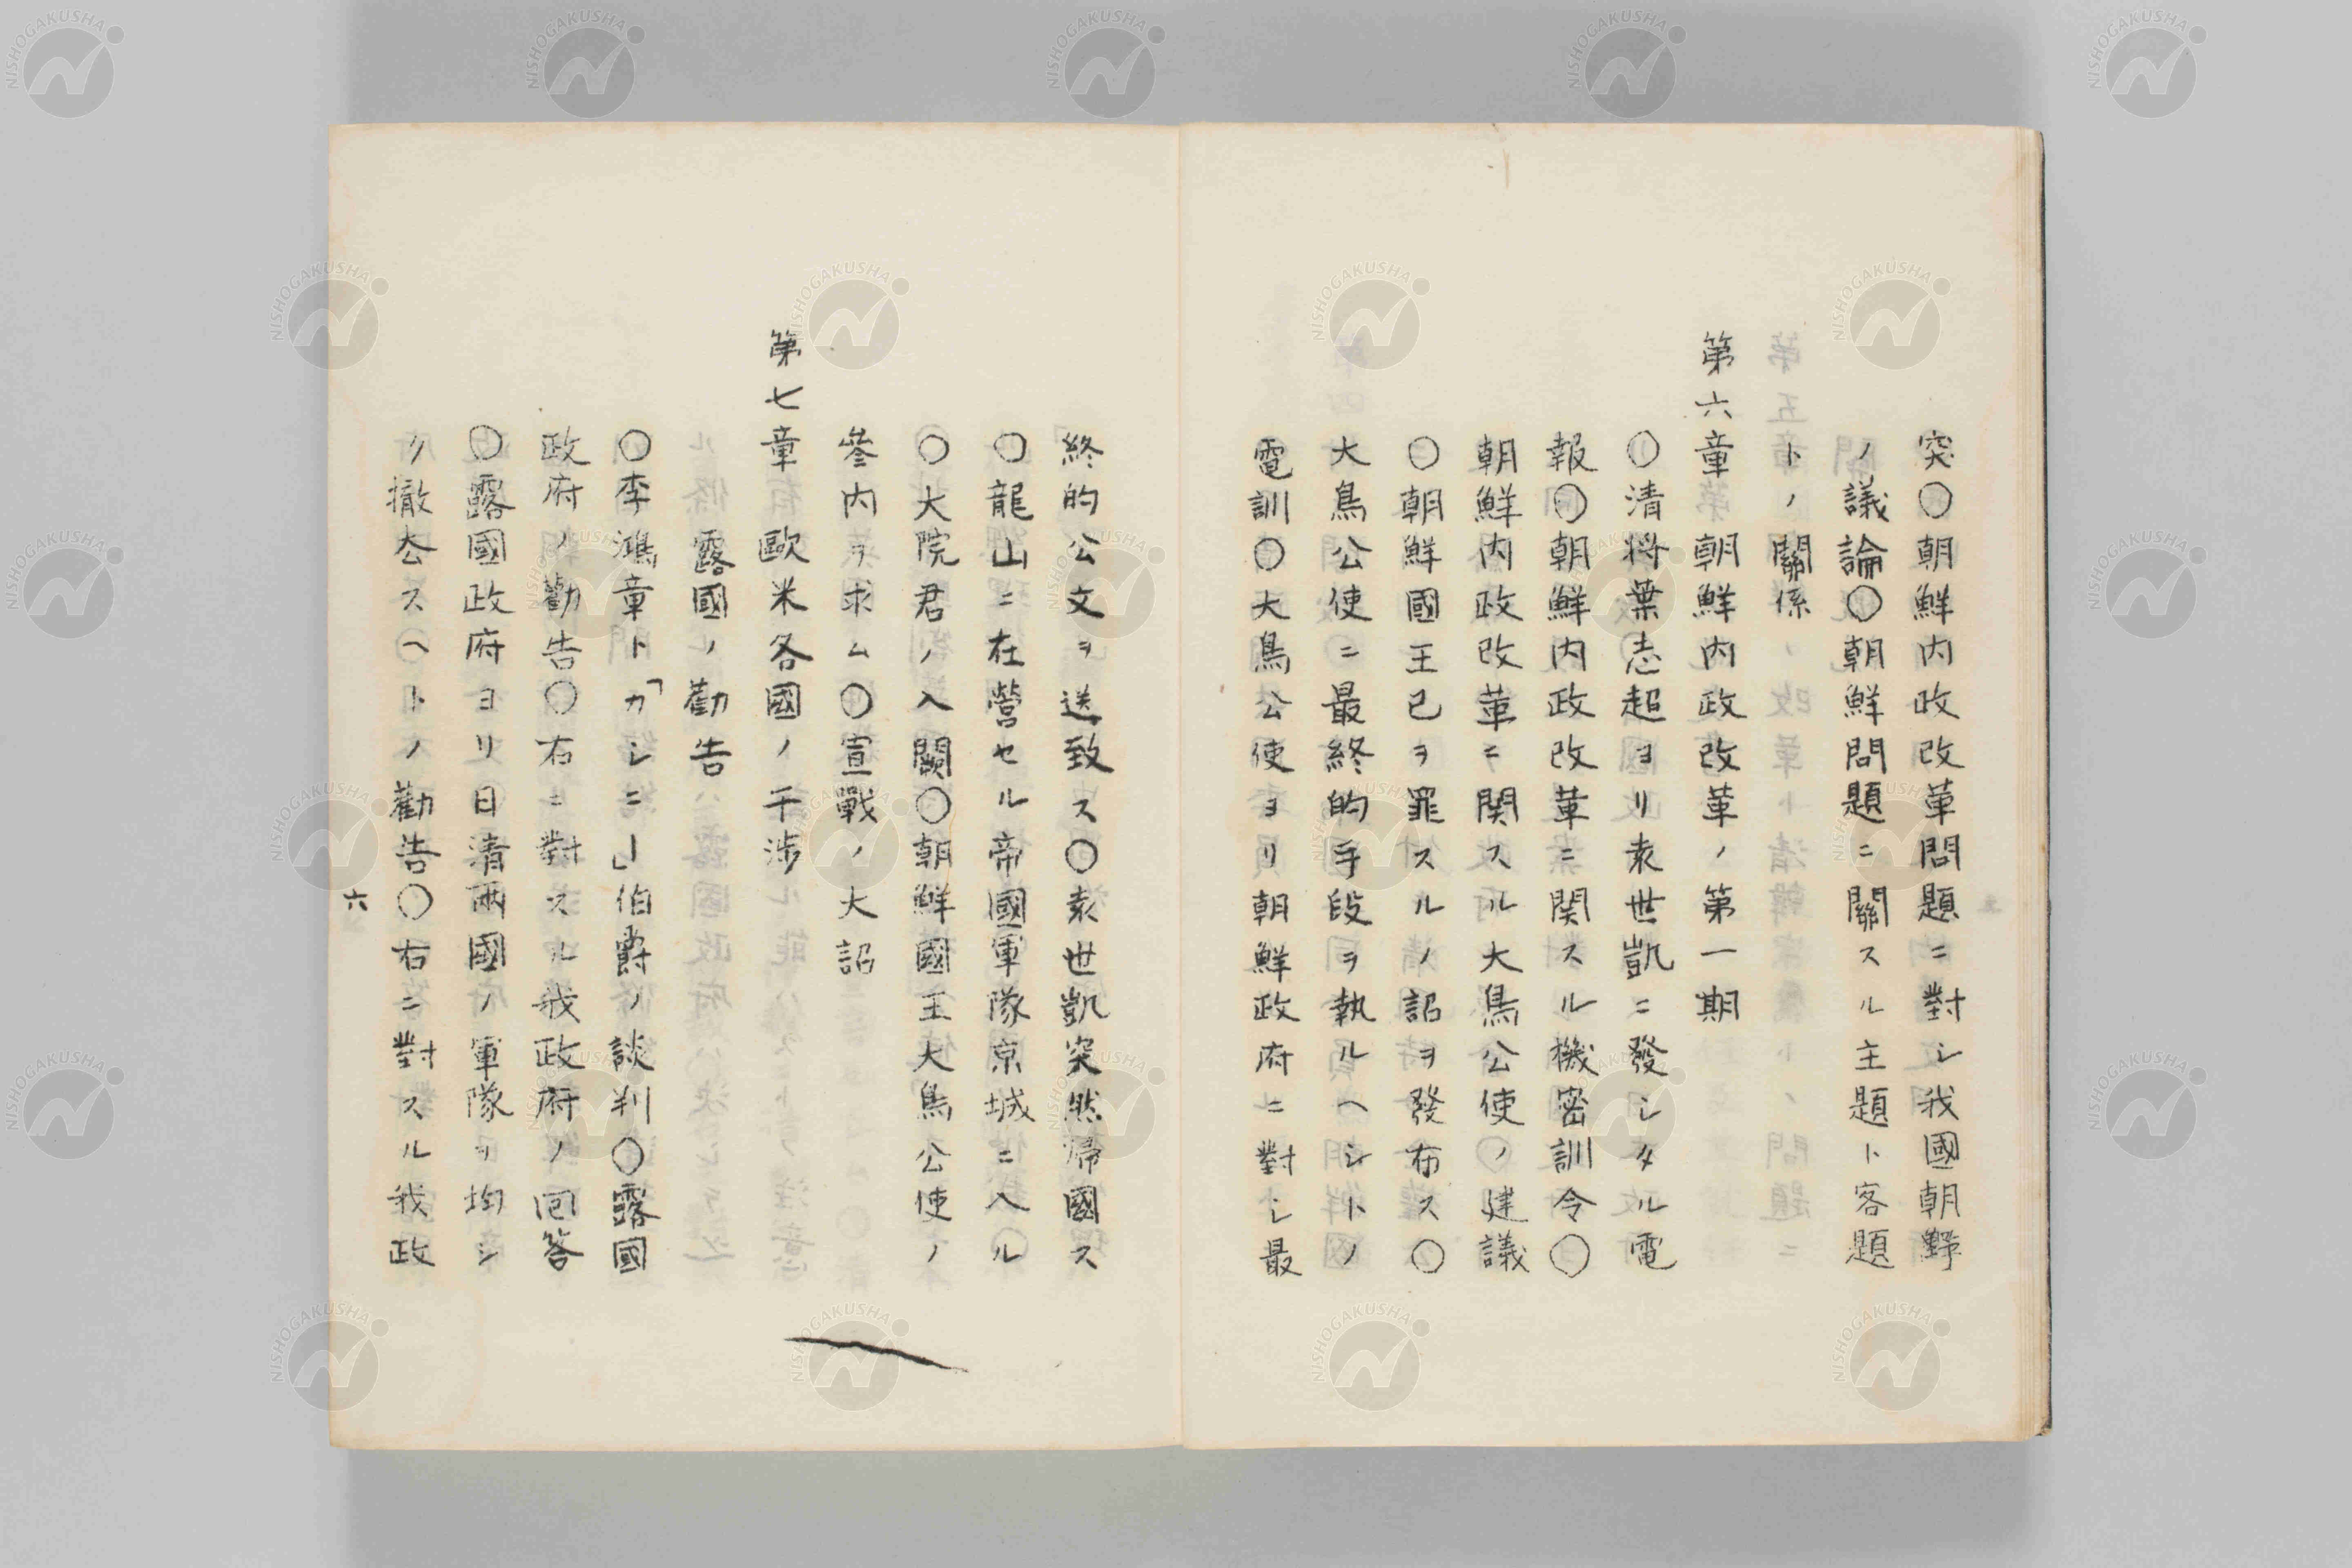 突〇朝鮮内政改革問題ニ對シ我國朝野
ノ議論〇朝鮮問題ニ關スル主題ト客題
トノ關係
第六章 朝鮮内政改革ノ第一期
〇清将葉志超ヨリ袁世凱ニ發シタル電
報〇朝鮮内政改革ニ関スル機密訓令〇
朝鮮内政改革ニ関スル大鳥公使ノ建議
〇朝鮮國王己ヲ罪スルノ詔ヲ發布ス〇
大鳥公使ニ最終的手段ヲ執ルヘシトノ
電訓〇大鳥公使ヨリ朝鮮政府ニ對シ最
終的公文ヲ送致ス〇袁世凱突然帰國ス
〇龍山ニ在營セル帝國軍隊京城ニ入ル
〇大院君ノ入闕〇朝鮮國王大鳥公使ノ
參内ヲ求ム〇宣戰ノ大詔
第七章 歐米各國ノ干渉
露國ノ勸告
〇李鴻章ト「カシニー」伯爵ノ談判〇露國
政府ノ勸告〇右ニ對スル我政府ノ回答
〇露國政府ヨリ日清兩國ノ軍隊ヲ均シ
ク撤去スヘトノ勸告〇右ニ對スル我政
六
NISHOGAKUSHA